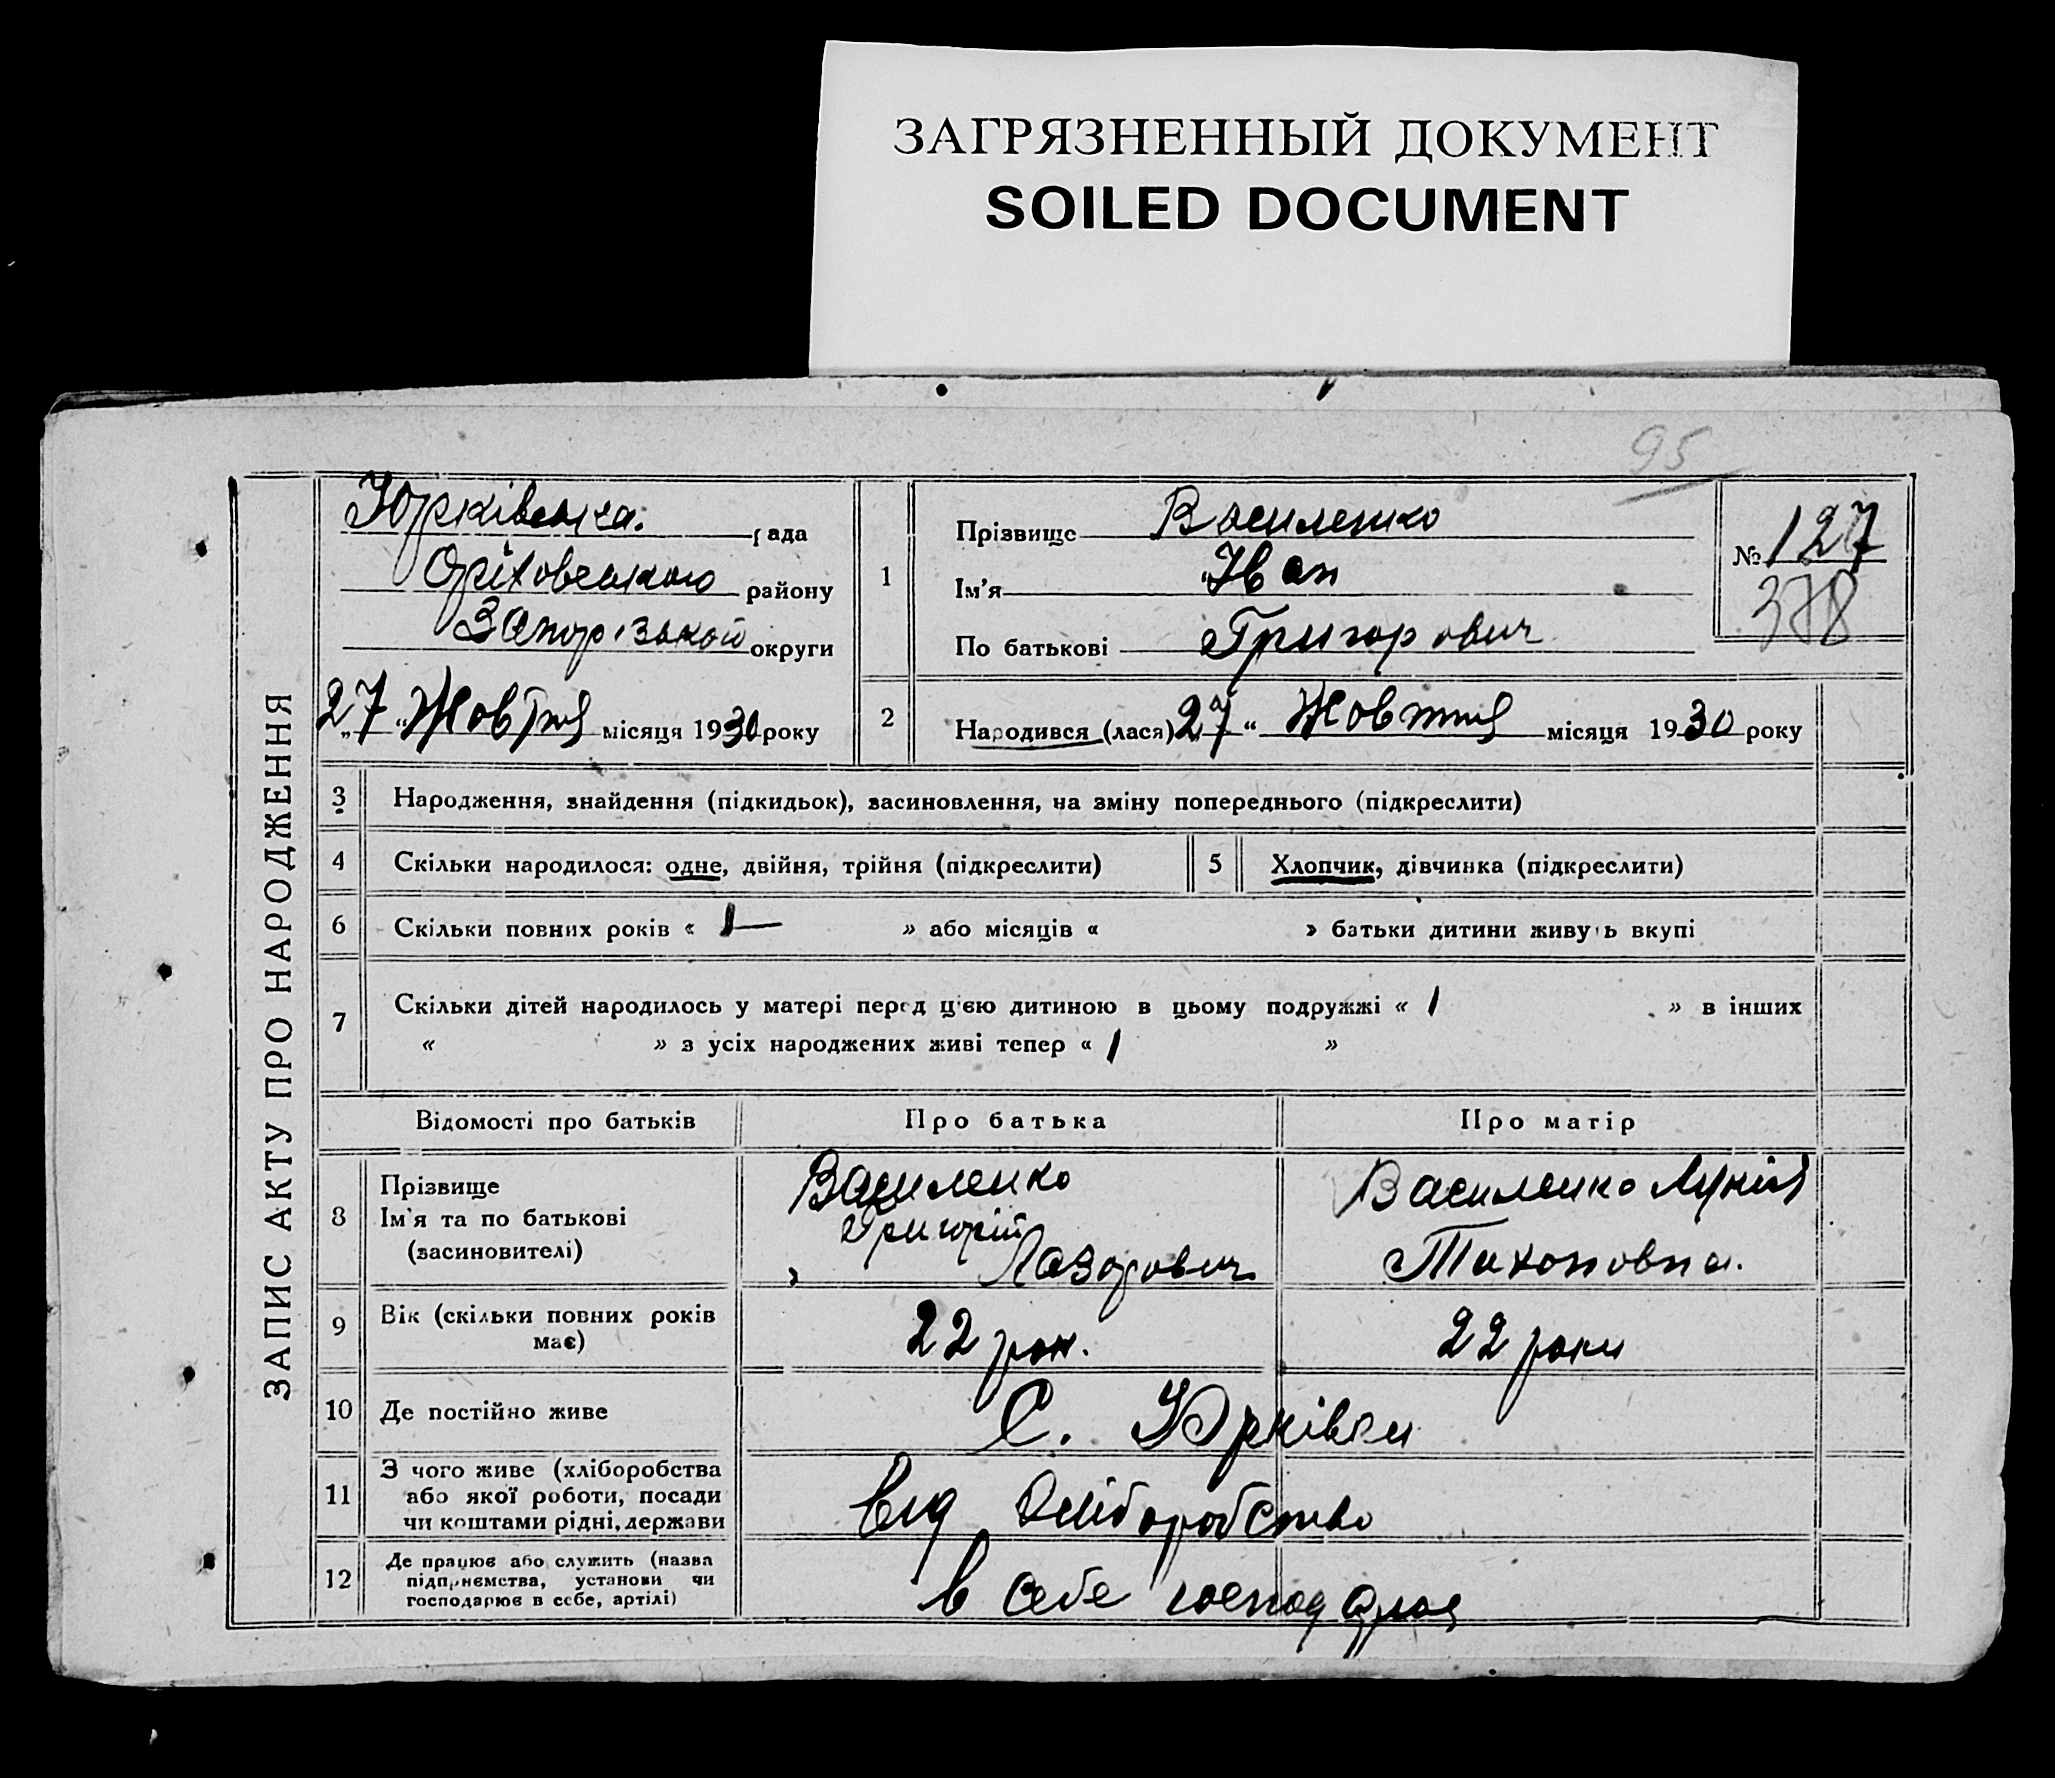 ЗАГРЯЗНЕННЫЙ ДОКУМЕНТ
SOILED DOCUMENT
95
ЗАПИС АКТУ ПРО НАРОДЖЕННЯ
Юрківська. рада
Оріховського району
Запорізькой округи
27 "Жовтня місяця 1930 року
1
Прізвище Василенко
Ім'я Іван
По батькові Григорович
№ 127
378
2 Народився (лася) 27 " Жовтня місяця 1930 року
3 Народження, знайдення (підкидьок), засиновлення, на зміну попереднього (підкреслити)
4 Скільки народилося: одне, двійня, трійня (підкреслити)
5 Хлопчик, дівчинка (підкреслити)
6 Скільки повних років « 1— » або місяців « » батьки дитини живуть вкупі
7 Скільки дітей народилось у матері перед цією дитиною в цьому подружжі « 1 » в інших
« » з усіх народжених живі тепер « 1 »
Відомості про батьків Про батька Про матір
8 Прізвище
Ім'я та по батькові
(засиновителі)
Василенко
Григорій
Лазорович
Василенко Лукія
Тихоновна.
9 Вік (скільки повних років
має)
22 рок. 22 роки
10 Де постійно живе С. Юрківки
11 З чого живе (хліборобства
або якої роботи, посади
чи коштами рідні, держави
від Хліборобство
12 Де працює або служить (назва
підприємства, установи чи
господарює в себе, артілі)
в себе господарює